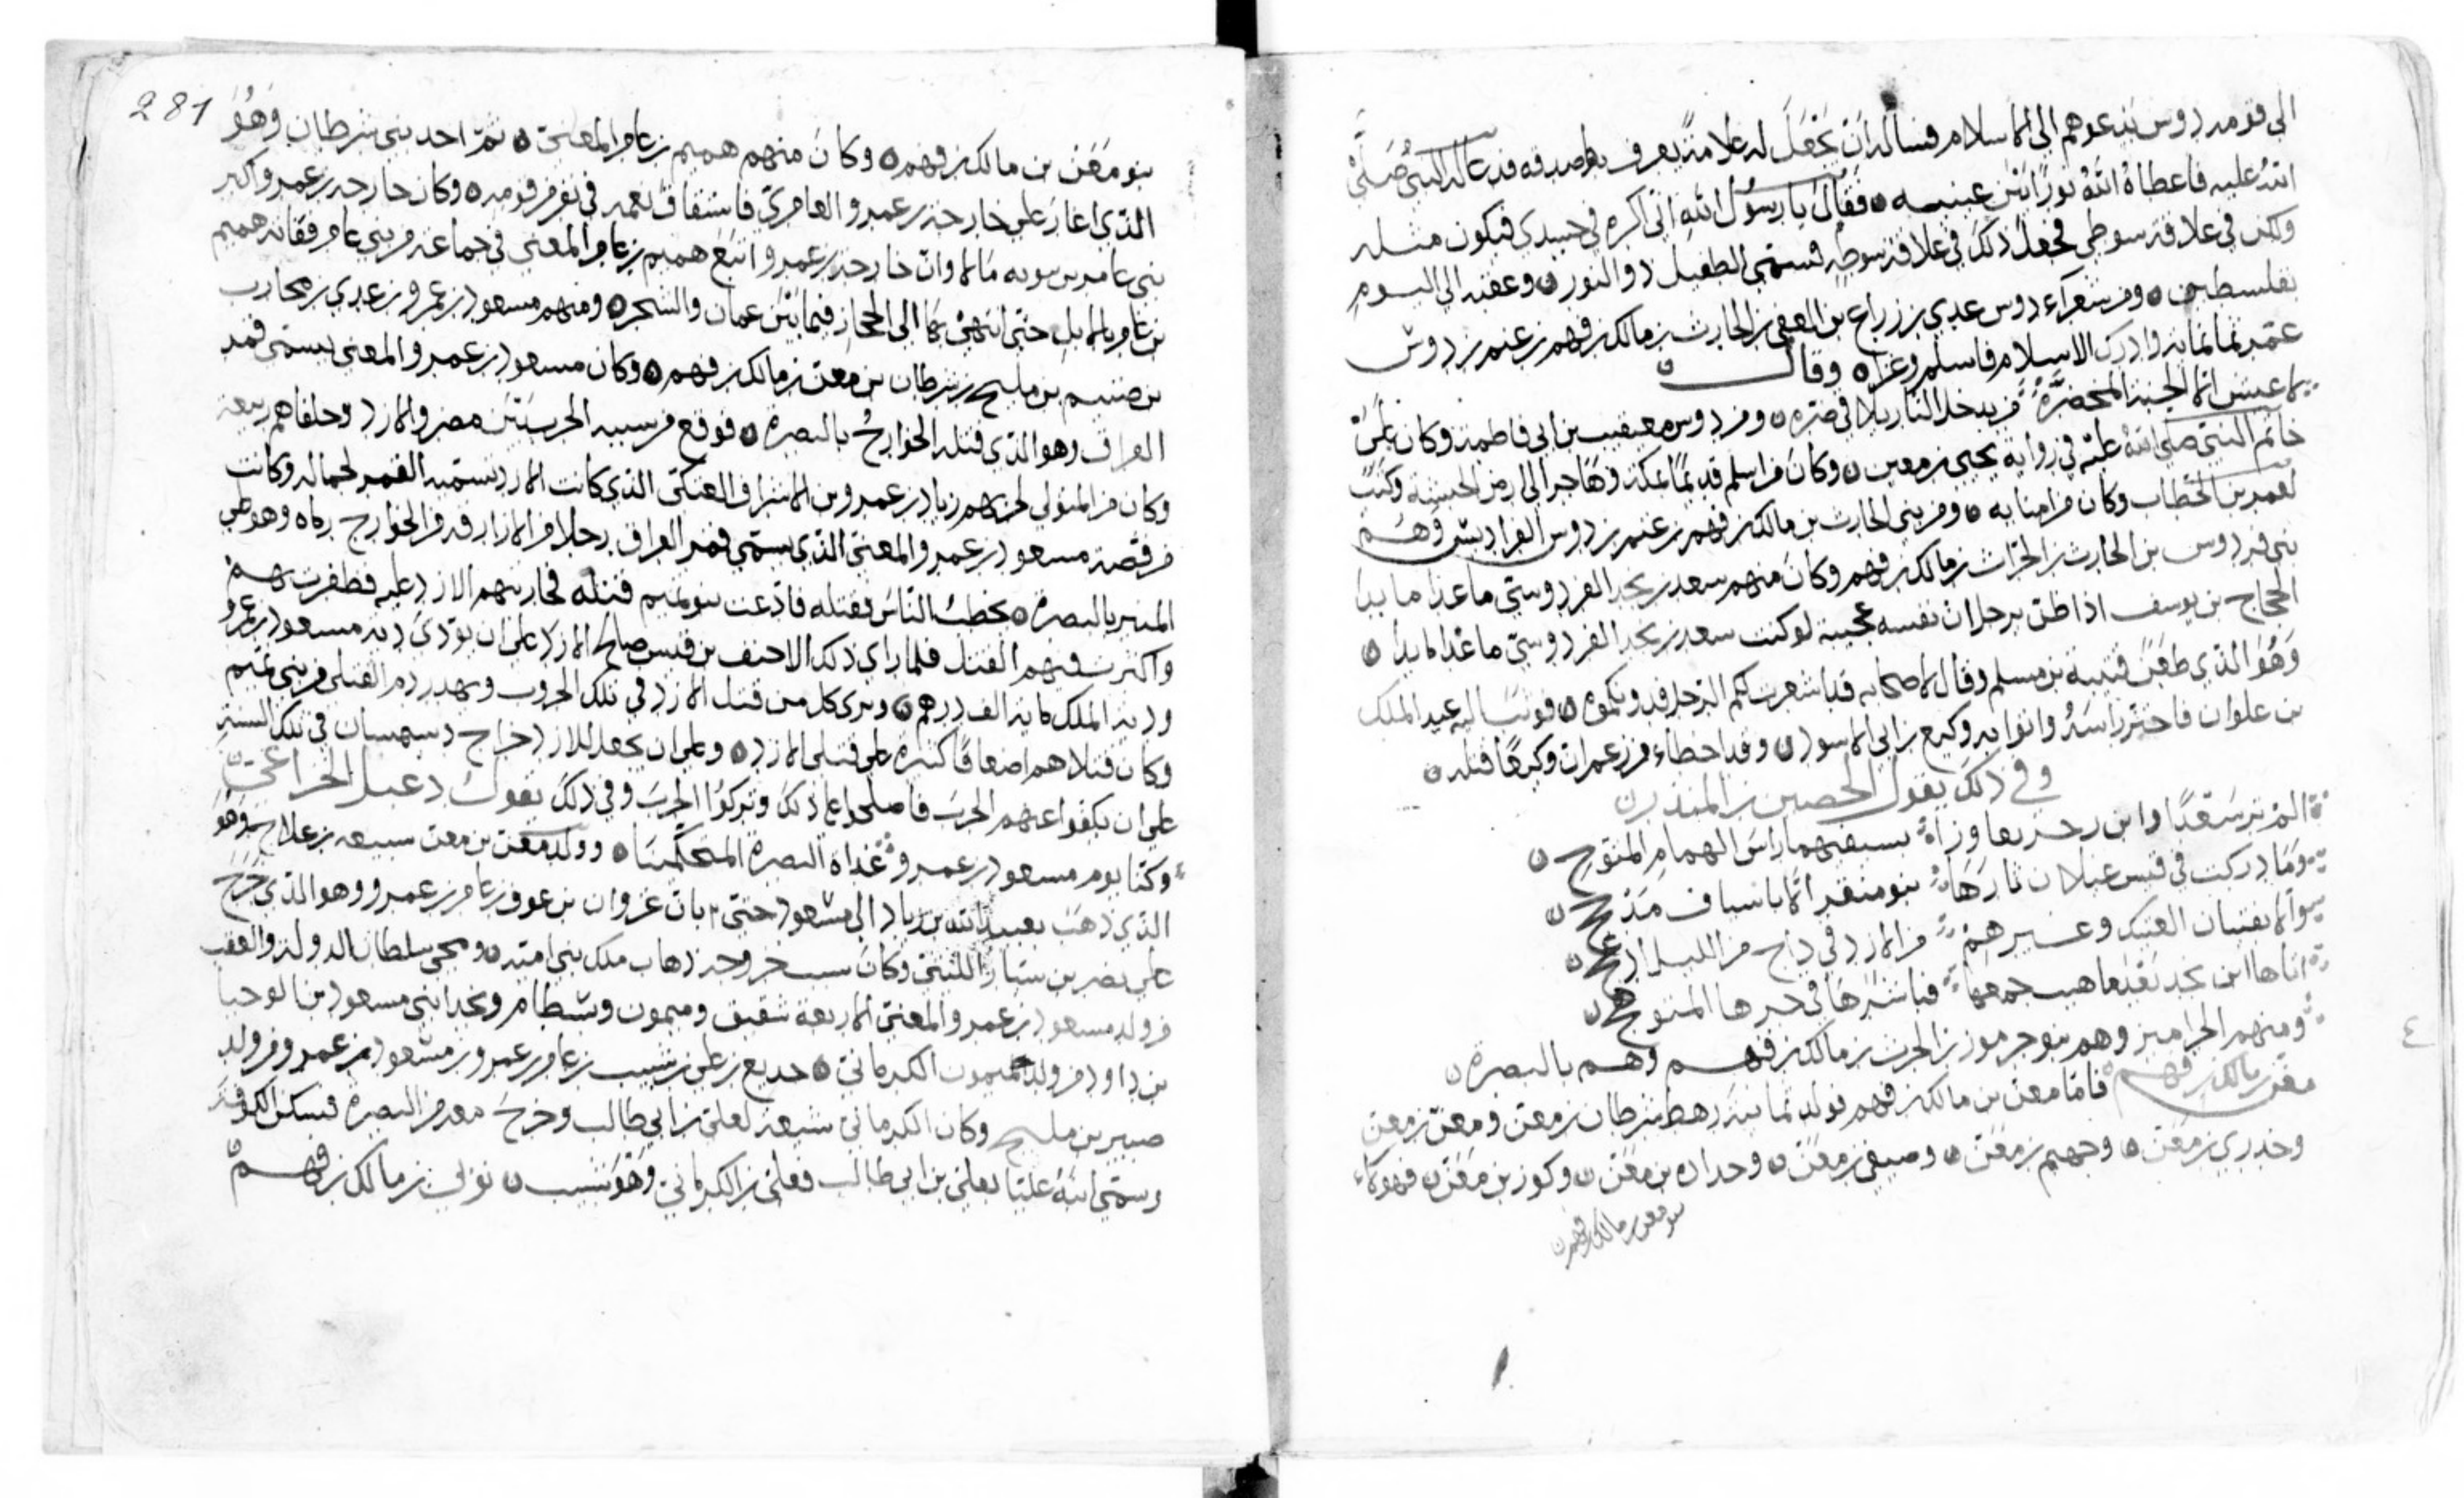 الى قومه دوس يدعوهم الى الاسلام فساله ان يجعل له علامة يعرف بها صدقه فدعا له النبي صلى
الله عليه فاعطاه الله نورا بين عينيه ٥ فقال يا رسول الله اني اكره في جسدي فيكون مثله
ولكن في علاقة سوطي فجعل ذلك في علاقة سوطه فسمي الطفيل ذو النور ٥ وعقبه الى اليوم
بفلسطين ٥ ومن شعراء دوس عدي بن زراع بن العقي بن الحارث بن مالك بن فهم بن غنم بن دوس
عمر ثمانمائة وادرك الاسلام فاسلم وغزا ٥ وقال
لا عيش الا الجنة المخضرة من يدخل النار يلاقي ضره ٥ ومن دوس معيقيب بن ابي فاطمة وكان على
خاتم النبي صلى الله عليه في رواية يحيى بن معين ٥ وكان من اسلم قديما بمكة وهاجر الى ارض الحبشة وكتب
لعمر بن الخطاب وكان من امنايه ٥ ومن بني الحارث بن مالك بن فهم بن غنم بن دوس الفراديس وهم
بني فردوس بن الحارث بن مالك بن فهم وكان منهم سعد بن نجد الفردوسي ما عدا ما بدا
الحجاج بن يوسف اذا ظن برجل ان نفسه عجبته لو كنت سعد بن نجد الفردوسي ما عدا ما بدا ٥
وهو الذي طعن قتيبة بن مسلم وقال لاصحابه الرجل فدونكموه ٥ فوثب اليه عبد الملك
بن علوان فاحتز راسه واتوا به وكيع بن ابي الاسود ٥ وقد اخطاء من زعم ان وكيعا قتله ٥
وفي ذلك يقول الحصين بن المنذر
الم تر سعدا وابن زحر تعاوزاه بسيفهما راس الهمام المتوج ٥
وما دركت في قيس عيلان ثارها بنو منقر الا باسياف مذحج ٥
سوا لا بفتيان العتيك وغيرهم من الازد في داج من الليل ادعج ٥
اتاها ابن نجد جمعها فباشرها في حرها المتوهج ٥
ومنهم الجراميز وهم بنو جرموز بن الحرث بن مالك بن فهم وهم بالبصرة ٥
معن بن مالك بن فهم فاما معن بن مالك بن فهم فولد ثمانية رهط شرطان بن معن ومعن بن معن
وخدري بن معن ٥ وجهيم بن معن ٥ وصيفي بن معن ٥ وحداد بن معن ٥ وكوز بن معن ٥ فهولاء
بنو معن بن مالك بن فهم ٥
281
بنو معن بن مالك بن فهم ٥ وكان منهم هميم بن عامر المعني ٥ ثم احد بني شرطان وهو
الذي اغار على خارجة بن عمرو العامري فاستاق نعمه في نفر من قومه ٥ وكان خارجة بن عمرو اكبر
بني عامر مالا وان خارجة بن عمرو اتبع هميم بن عامر المعني في جماعة من بني عامر هميم
بن عامر بالابل حتى انتهى بها الى الحجاز فيما بين عمان والشحر ٥ ومنهم مسعود بن عمرو بن عدي بن محارب
بن صنيم بن مليح بن شرطان بن معن بن مالك بن فهم ٥ وكان مسعود بن عمرو المعني يسمى قمر
العراق وهو الذي قتله الخوارج بالبصرة ٥ فوقع من سببه الحرب بين مضر والازد وحلفاهم ربيعة
وكان من المتولي لحربهم زياد بن عمرو بن الاشراف العتكي الذي كانت الازد تسميه القمر لجماله وكانت
من قصة مسعود بن عمرو المعني الذي يسمى قمر العراق رجلا من الازارقة من الخوارج رماه وهو على
المنبر بالبصرة ٥ يخطب الناس فقتله فادعت بنو تميم قتله فحاربتهم الازد عليه فظفرت بهم
واكثرت فيهم القتل فلما راى ذلك الاحنف بن قيس صالح الازد على ان يودي دية مسعود بن عمرو
ودية الملك ماية الف درهم ٥ ويدى كل من قتل الازد في تلك الحروب ويهدر دم القتلى من بني تميم
وكان قتلاهم اضعافا كثيرة على قتلى الازد ٥ وعلى ان يجعل للازد خراج في تلك السنة
على ان يكفوا عنهم الحرب فاصلحوا على ذلك وتركوا الحرب وفي ذلك يقول دعبل الخزاعي
وكنا يوم مسعود بن عمرو غداة البصرة المتحكمينا ٥ وولد معن بن معن سبيعه بن علاج وهو
الذي ذهب بعبيد الله بن زياد الى مسعود حتى بان غزوان بن عوف بن عامر بن عمرو وهو الذي خرج
على نصر بن سيار الليثي وكان سبب خروجه ذهاب ملك بني امية ٥ ومحيي سلطان الدولة والعقب
من ولد مسعود بن عمرو المعني الاربعة شقيق وميمون وشطام ونجد ابني مسعود
بن داود من ولد ميمون الكرماني ٥ جديع بن علي بن شبيب بن عامر بن عمرو بن مسعود بن عمرو من ولد
صبير بن مليح وكان الكرماني شيعة لعلي بن ابي طالب وخرج معه من البصرة فسكن الكوفة
وسمي ابنه عليا بعلي بن ابي طالب فعلي بن الكرماني وهو شبيب ٥ نوى بن مالك بن فهم